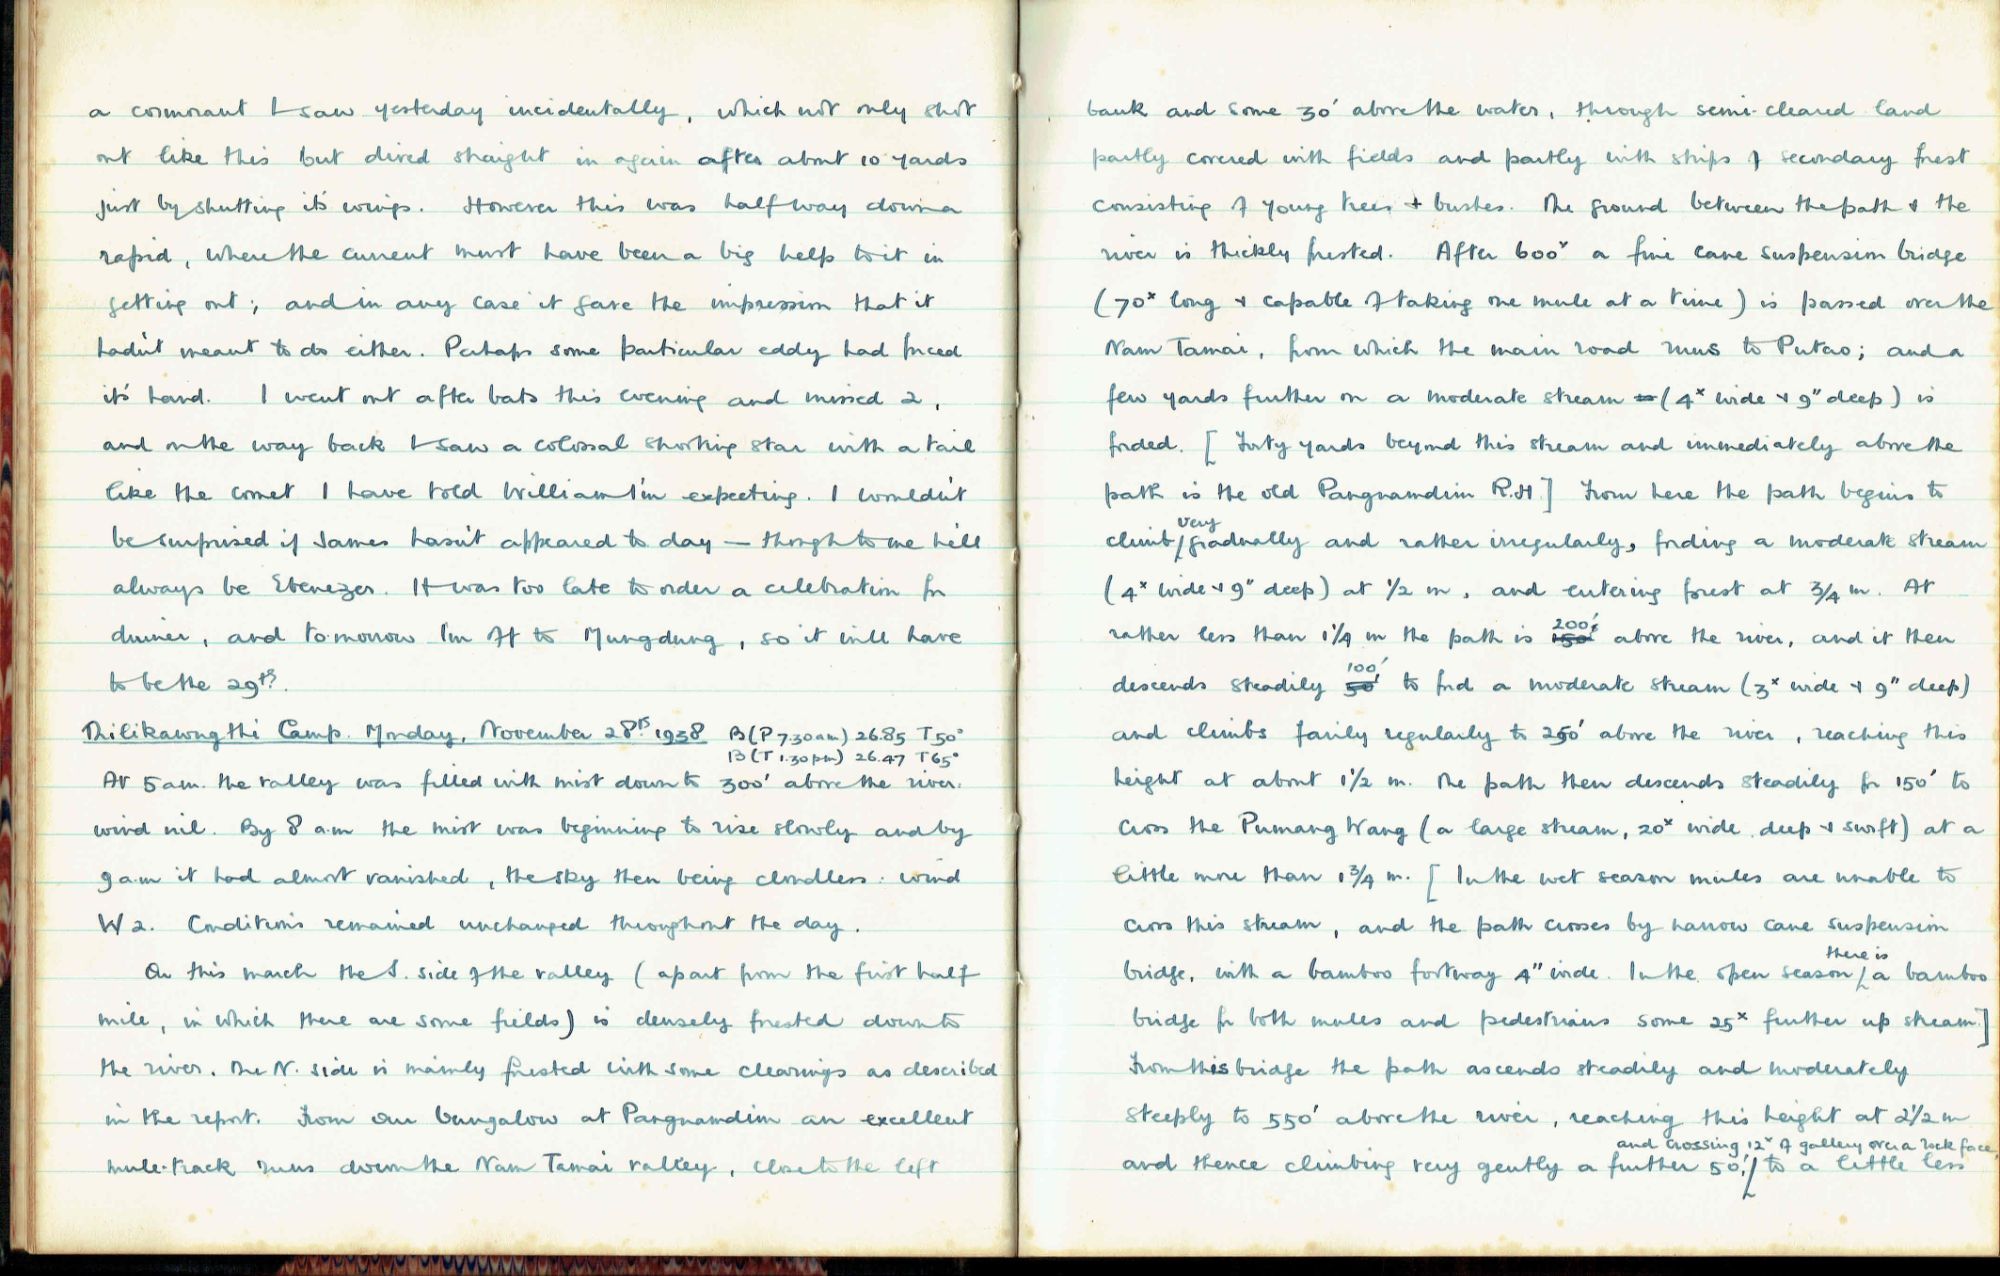 a cormorant I saw yesterday incidentally, which not only shot
out like this but dived straight in again after about 10 yards
just by shutting it's wings. However this was halfway down a
rapid, where the current must have been a big help to it in
getting out; and in any case it gave the impression that it
hadn't meant to do either. Perhaps some particular eddy had forced
it's hand. I went out after bats this evening and missed 2,
and on the way back I saw a colossal shooting star with a tail
like the comet I have told William I'm expecting. I wouldn't
be surprised if James hasn't appeared to day — though to me he'll
always be Ebenezer. It was too late to order a celebration for
dinner, and to-morrow I'm off to Mungdung, so it will have
to be the 29th.
Dilikawngthi Camp. Monday, November 28th 1938 B (P 7.30am) 26.85 T 50°
B (T 1.30pm) 26.47 T 65°
At 5 am. the valley was filled with mist down to 300' above the river.
wind nil. By 8 a.m the mist was beginning to rise slowly and by
9 a.m it had almost vanished, the sky then being cloudless: wind
W 2. Conditions remained unchanged throughout the day.
On this march the S. side of the valley (apart from the first half
mile, in which there are some fields) is densely forested down to
the river. The N. side is mainly forested with some clearings as described
in the report. From our bungalow at Pangnamdim an excellent
mule-track runs down the Nam Tamai valley, close to the left
bank and some 30' above the water, through semi-cleared land
partly covered with fields and partly with strips of secondary forest
consisting of young trees + bushes. The ground between the path + the
river is thickly forested. After 600ˣ a fine cane suspension bridge
(70ˣ long + capable of taking one mule at a time) is passed over the
Nam Tamai, from which the main road runs to Putao; and a
few yards further on a moderate stream (4ˣ wide + 9" deep) is
forded. [Forty yards beyond this stream and immediately above the
path is the old Pangnamdim R.H] From here the path begins to
climb very gradually and rather irregularly, fording a moderate stream
(4ˣ wide + 9" deep) at 1/2 m, and entering forest at 3/4 m. At
rather less than 1 1/4 m the path is 150' 200' above the river, and it then
descends steadily 50' 100' to ford a moderate stream (3ˣ wide + 9" deep)
and climbs fairly regularly to 250' above the river, reaching this
height at about 1 1/2 m. The path then descends steadily for 150' to
cross the Pumang Wang (a large stream, 20ˣ wide. deep + swift) at a
little more than 1 3/4 m. [In the wet season mules are unable to
cross this stream, and the path crosses by narrow cane suspension
bridge, with a bamboo footway 4" wide. In the open season there is a bamboo
bridge for both mules and pedestrians some 25ˣ further up stream.]
From this bridge the path ascends steadily and moderately
steeply to 550' above the river, reaching this height at 2 1/2 m
and thence climbing very gently a further 50', and crossing 12ˣ of gallery over a rock face, to a little less